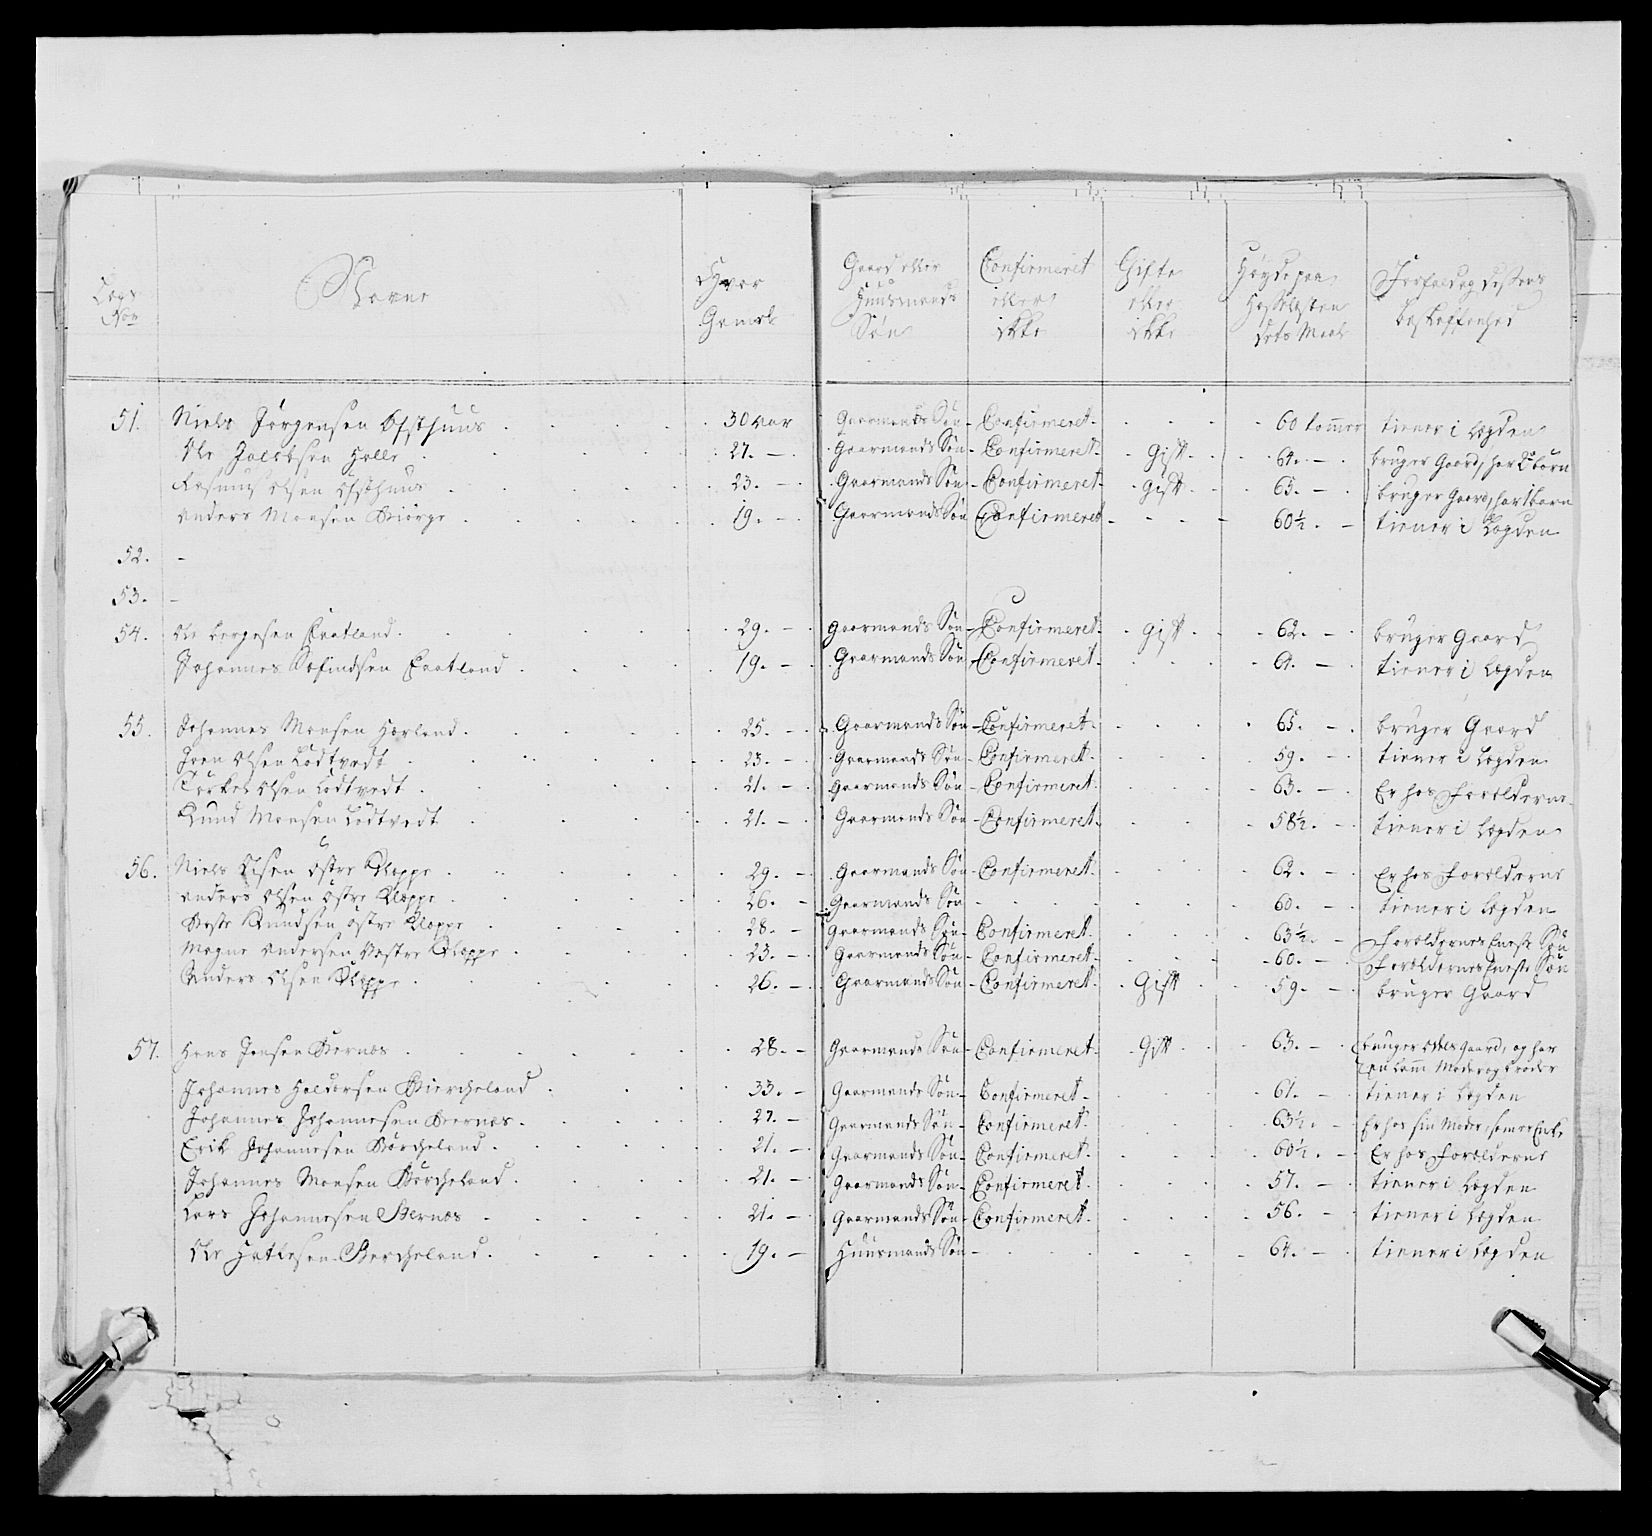 Legs No Navne Hvor Gamel Gaard eller Huusmands Søn Confirmeret eller ikke Gifte eller ikke Høyde paa Hessel dets Maal beskaffenhed
51. Niels Jørgensen Ofsthuus 30 aar Gaarmands Søn Confirmeret 60 tommer tiener i Legden
Ole Jacobsen Helle 27. Gaarmands Søn Confirmeret Gift 61. bruger Gaard, har 2 børn
Rasmus Olsen Ofsthuus 23. Gaarmands Søn Confirmeret Gift 65. bruger Gaard, har 1 barn
Anders Monsen Biørge 19. Gaarmands Søn Confirmeret 60½. tiener i Legden
52. -
53. -
54. Ole Bergesen Eratland 29. Gaarmands Søn Confirmeret Gift 62. bruger Gaard
Johannes Eratland 19. Gaarmands Søn Confirmeret 61. tiener i Legden
55. Johannes Monsen Horland 25. Gaarmands Søn Confirmeret 65. bruger Gaard
Joen Olsen Lødtvedt 23. Gaarmands Søn Confirmeret 59. tiener i Legden
Torkel Olsen Lødtvedt 21. Gaarmands Søn Confirmeret 63. Er hos Forældrene
Knud Monsen Lødtvedt 21. Gaarmands Søn Confirmeret 58½. tiener i Legden
56. Niels Olsen østre Kleppe 29. Gaarmands Søn Confirmeret 62. Er hos Forældrene
Anders Olsen østre Kleppe 26. Gaarmands Søn 60. tiener i Legden
Knudsen østre Kleppe 28. Gaarmands Søn Confirmeret 63½. Forældrenes Eneste Søn
Mogne Andersen Vestre Kleppe 23. Gaarmands Søn Confirmeret 60. Forældrenes Eneste Søn
Anders Olsen Kleppe 26. Gaarmands Søn Confirmeret Gift 59. bruger Gaard
57. Hans Jensen Bernæs 28. Gaarmands Søn Confirmeret Gift 63. bruger Gaard, og har
en lam Moder og broder
Johannes Haldorsen Biercheland 33. Gaarmands Søn Confirmeret 61. tiener i Legden
Johannes Johannesen Bernæs 27. Gaarmands Søn Confirmeret 63½. Er hos sin Moder, som er Enke
Erik Johannesen Børcheland 21. Gaarmands Søn Confirmeret 60½. Er hos Forældrene
Johannes Monsen Børcheland 21. Gaarmands Søn Confirmeret 57. tiener i Legden
Lars Johannesen Bernæs 21. Gaarmands Søn Confirmeret 56. tiener i Legden
Ole Hattesen Bercheland 19. Huusmands Søn 64. tiener i Legden